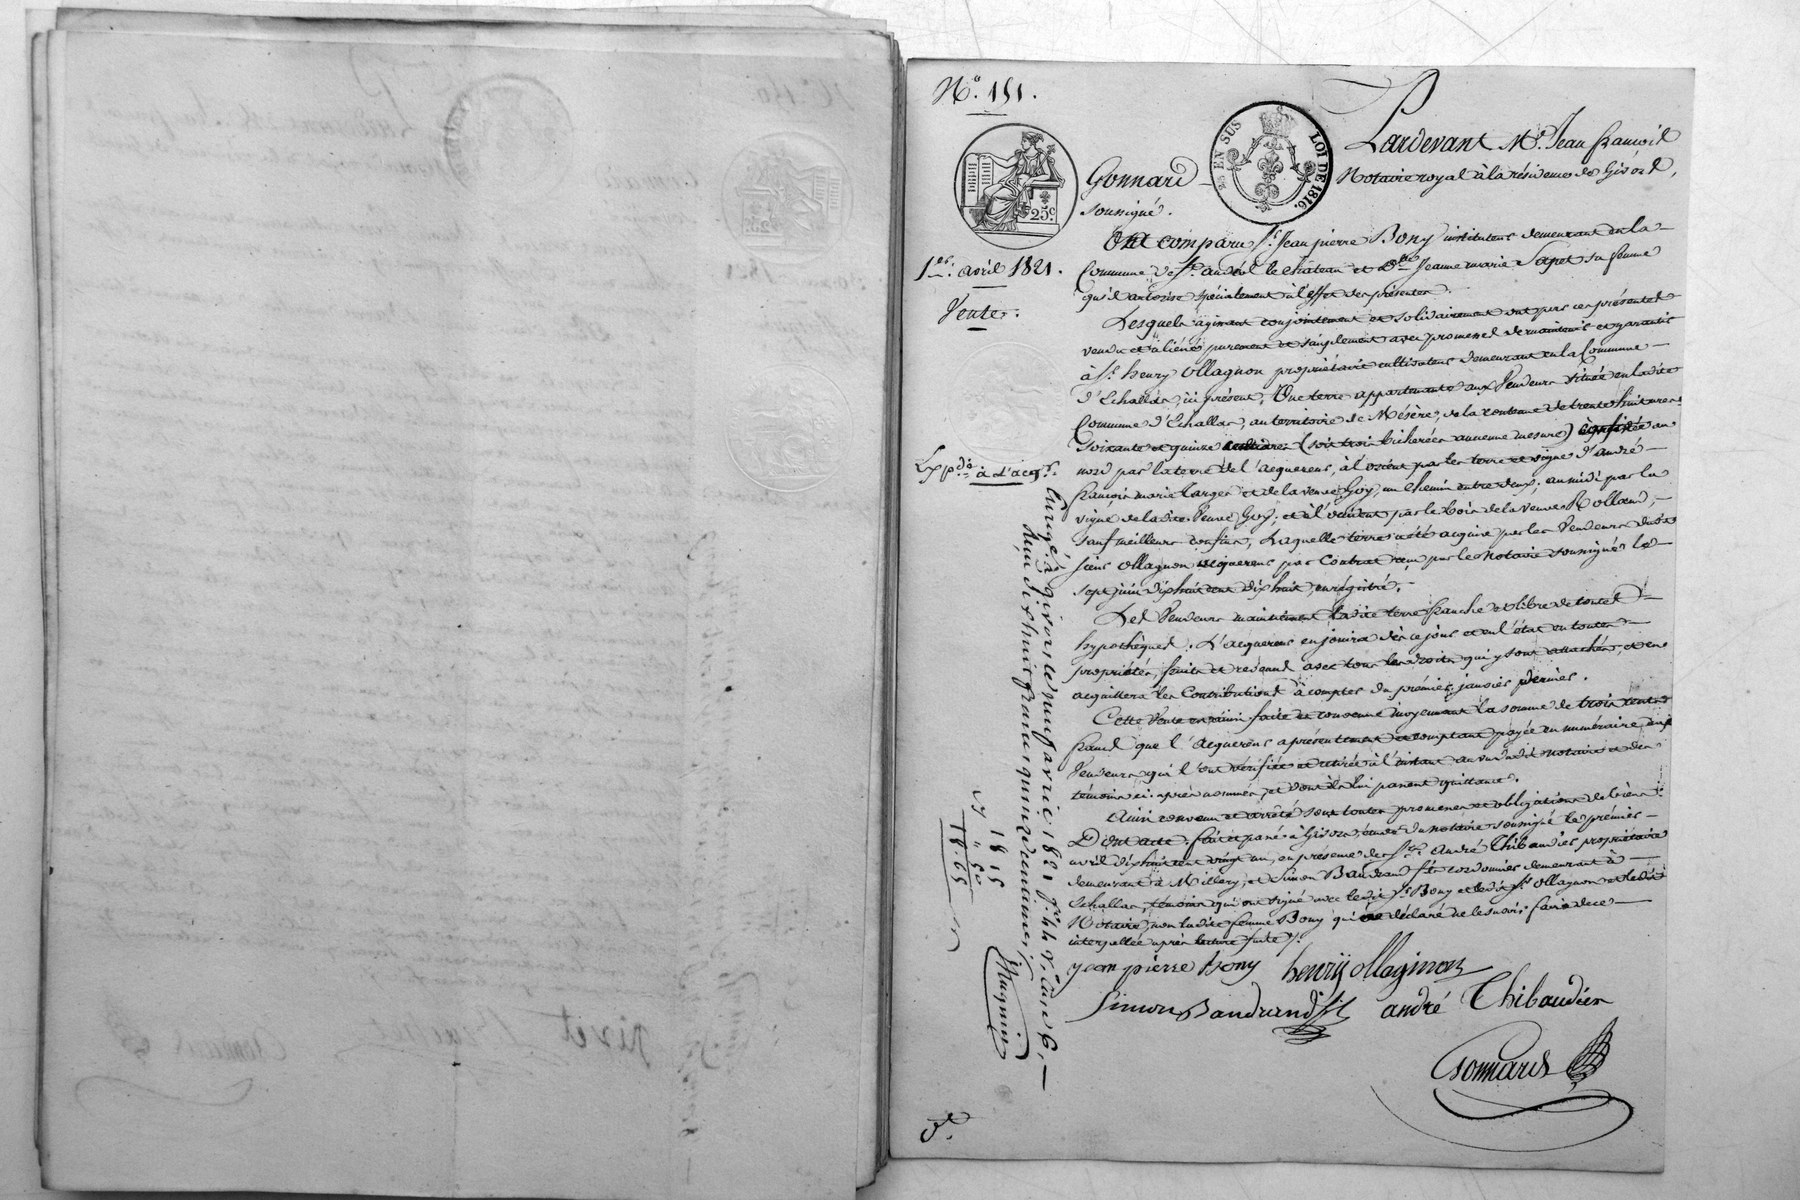 N.° 151.
EN SUS
LOI DE 1816.
25 c.
Pardevant M.e Jean françois
Gonnard Notaire royal à la résidence de Givors,
soussigné.
Ont comparu S.r Jean pierre Bony instituteur demeurant en la
Commune de S.t andéol le château et D.me Jeanne marie Sapet sa femme
qu'il autorise spécialement à l'effet des présentes.
1.er avril 1821.
Vente.
Lesquels agissant conjointement et solidairement ont par ces présentes
vendu et aliéné purement et simplement avec promesse de maintenir et garantir
à S.r henry Ollagnon propriétaire cultivateur demeurant en la Commune
d'Echallas, ici présent, Une terre appartenante aux Vendeurs située en ladite
Commune d'Echallas, au territoire de Mésère, de la contenue de trente huit ares
soixante et quinze centiares (soit trois bicherées ancienne mesure) confinée au
nord par la terre de l'acquereur, à l'orient par les terre et vigne d'andré
françois marie Targe et de la veuve Goy, un chemin entre deux; au midi par la
vigne de ladite Veuve Goy; et à l'occident par le bois de la veuve Rolland,
sauf meilleurs confins, Laquelle terre a été acquise par les Vendeurs dudit
sieur Ollagnon acquereur par Contrat reçu par le Notaire soussigné le
sept juin dix huit cent dix huit, enregistré.
Les Vendeurs maintiennent ladite terre franche et libre de toutes
hypothèques. L'acquereur en jouira dès ce jour et en l'état en toute
propriété, fruits et revenus avec tous les droits qui y sont attachés, et en
acquittera les Contributions à compter du premier janvier dernier.
Cette Vente est ainsi faite et convenue moyennant la somme de trois cents
francs que l'acquereur a présentement et comptant payée en numéraire, aux
Vendeurs qui l'ont vérifiée et retirée à l'instant au vu dudit notaire et des
témoins ci-après nommés, et dont ils lui passent quittance.
Ainsi convenu et arrêté sous toutes promesses et obligations de biens.
Dont acte. fait et passé à Givors, étude du notaire soussigné le premier
avril dix huit cent vingt un, en présence de S.rs André Thibaudier propriétaire
demeurant à Millery, et Simon Bandrand fils cordonnier demeurant à
Echallas, témoins qui ont signé avec ledit S.r Bony et ledit S.r Ollagnon et ledit
Notaire, non ladite femme Bony qui a déclaré ne le savoir faire de ce
interpellée après lecture faite.
jean pierre bony henry ollagnon
Simon Bandrand fils andré Thibaudier
Gonnard
Exp.dié à l'acq.r
Enregé à givors le neuf avril 1821 f.° 44 v.° Case 6.
Reçu dix huit francs quinze centimes
Magnin
18 15
" 50
18.65